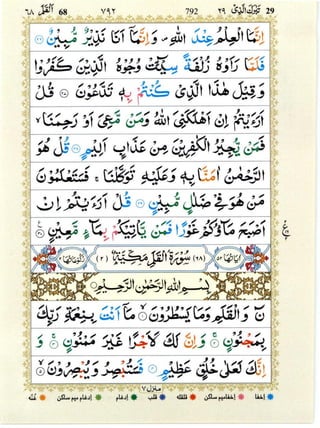 ٦٨ القلم 68 ٧٩٢ 792 تبرك الذي ٢٩ 29
اِنَّمَا الْعِلْمُ عِنْدَ اللّٰهِ ۪ وَاِنَّمَاۤ اَنَا نَذِيْرٌ مُّبِيْنٌ ﴿۲۶﴾
فَلَمَّا رَاَوْهُ زُلْفَةً سِيْٓـَٔتْ وُجُوْهُ الَّذِيْنَ كَفَرُوْا
وَقِيْلَ هٰذَا الَّذِيْ كُنْتُمْ بِهٖ تَدَّعُوْنَ ﴿۲۷﴾ قُلْ
اَرَءَيْتُمْ اِنْ اَهْلَكَنِيَ اللّٰهُ وَمَنْ مَّعِيَ اَوْ رَحِمَنَا ۙ
فَمَنْ يُّجِيْرُ الْكٰفِرِيْنَ مِنْ عَذَابٍ اَلِيْمٍ ﴿۲۸﴾ قُلْ هُوَ
الرَّحْمٰنُ اٰمَنَّا بِهٖ وَعَلَيْهِ تَوَكَّلْنَا ۚ فَسَتَعْلَمُوْنَ
مَنْ هُوَ فِيْ ضَلٰلٍ مُّبِيْنٍ ﴿۲۹﴾ قُلْ اَرَءَيْتُمْ اِنْ
اَصْبَحَ مَآؤُكُمْ غَوْرًا فَمَنْ يَّاْتِيْكُمْ بِمَآءٍ مَّعِيْنٍ ﴿۳۰﴾
سُوْرَةُ الْقَلَمِ مَكِّيَّةٌ (٢)
بِسْمِ اللّٰهِ الرَّحْمٰنِ الرَّحِيْمِ
نٓ وَالْقَلَمِ وَمَا يَسْطُرُوْنَ ﴿۱﴾ مَاۤ اَنْتَ بِنِعْمَةِ رَبِّكَ
بِمَجْنُوْنٍ ﴿۲﴾ وَاِنَّ لَكَ لَاَجْرًا غَيْرَ مَمْنُوْنٍ ﴿۳﴾ وَ
اِنَّكَ لَعَلٰى خُلُقٍ عَظِيْمٍ ﴿۴﴾ فَسَتُبْصِرُ وَيُبْصِرُوْنَ ﴿۵﴾
منزل ٧
اخفا اخفا ميم ساكن قلقله قلب ادغام ادغام ميم ساكن غنه